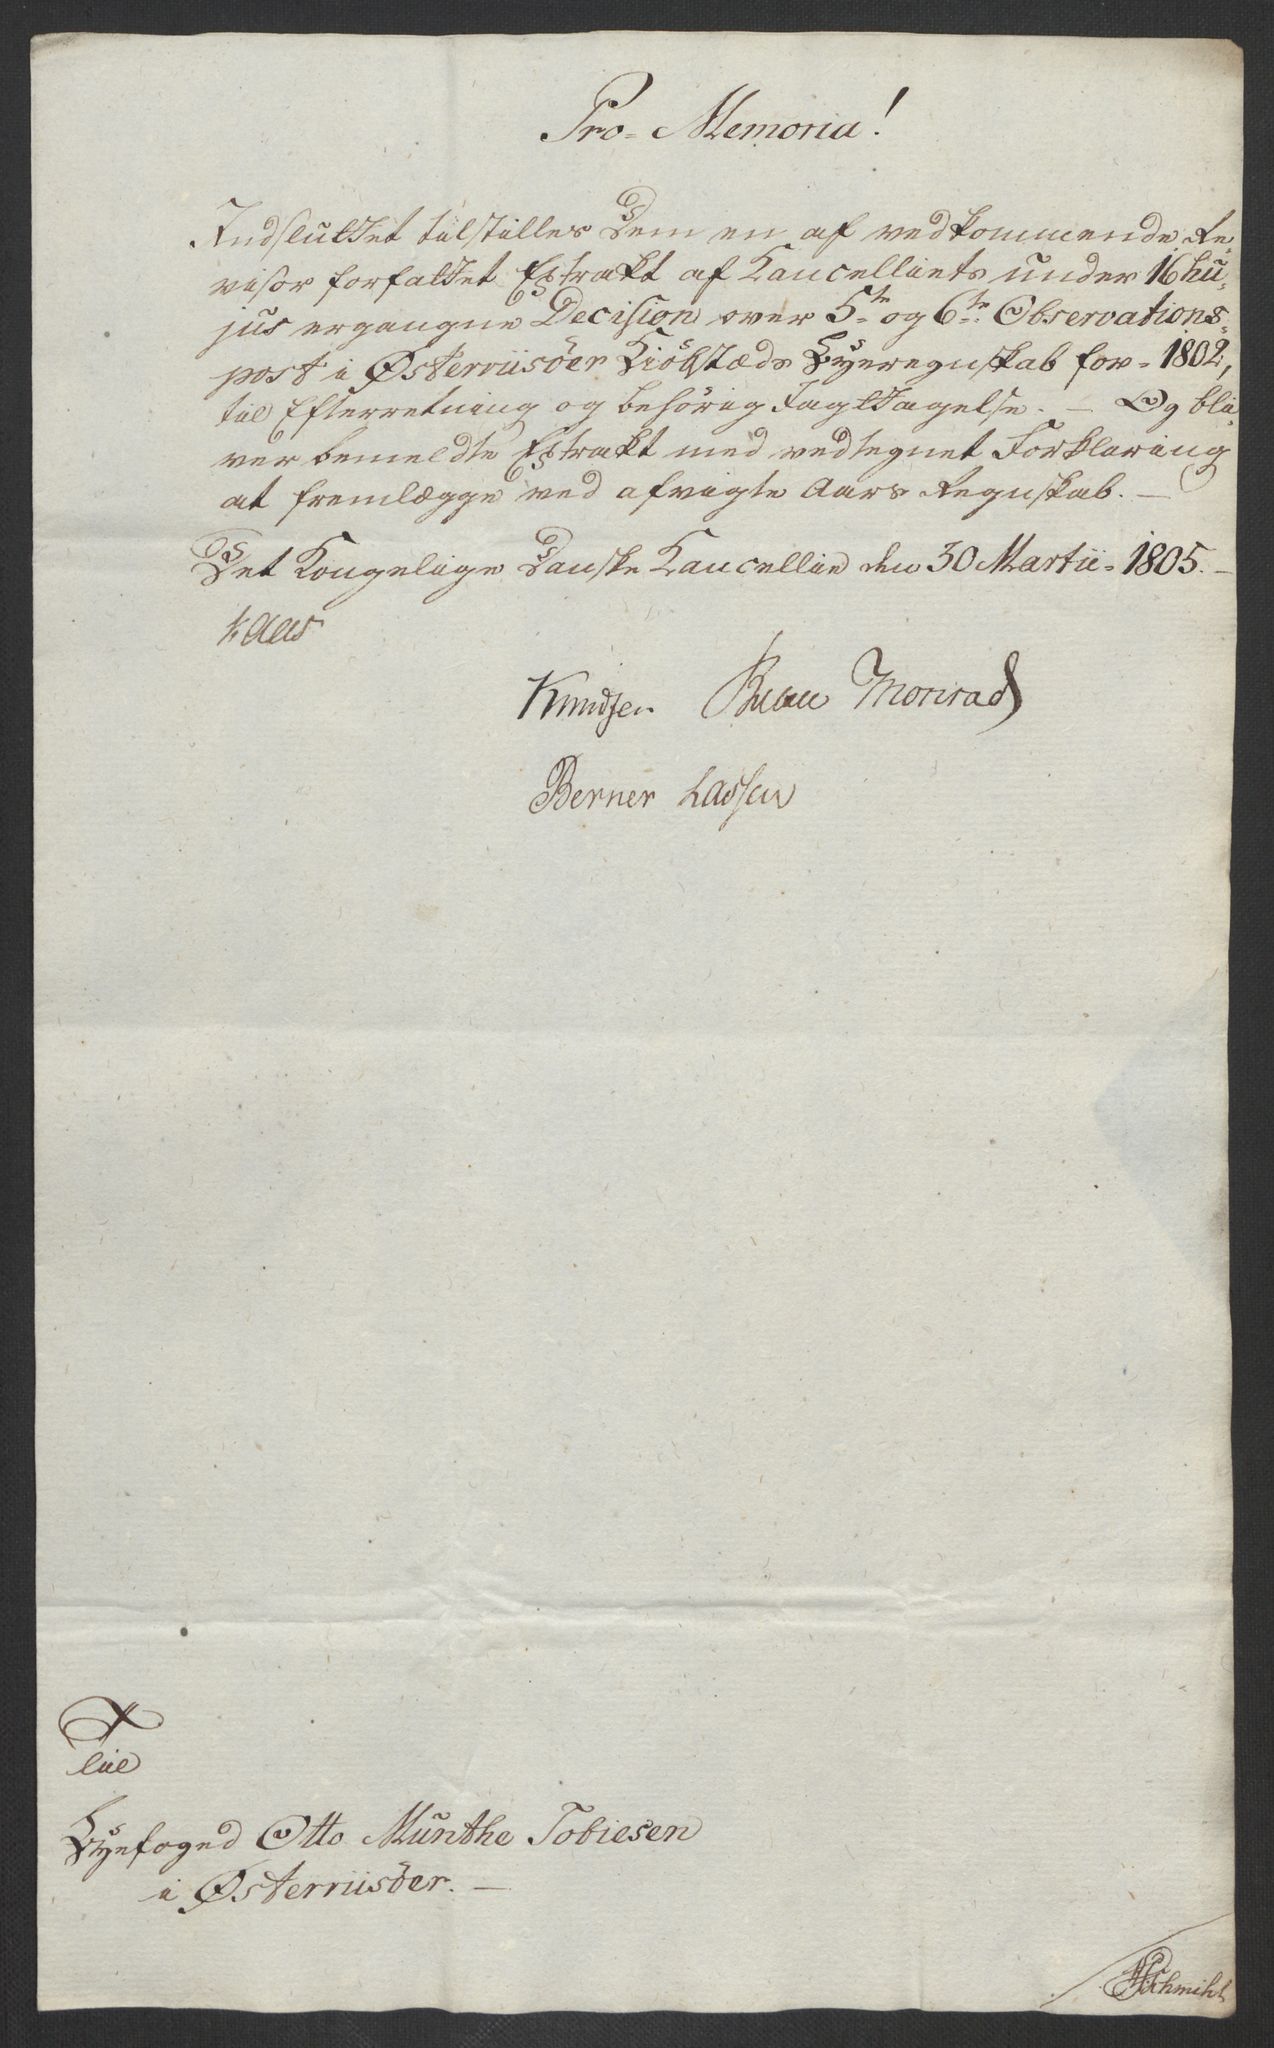 Pro-Memoria!
Indsluttet tilstilles Dem en af vedkommende Re-
visor forfattet Extrakt af Cancelliets under 16 hu-
jus ergangne Decision over 5te og 6te Observations-
post i Østerriisöer Kiöbstæds Byeregnskab for 1802,
til Efterretning og behörig Iagttagelse. — Og bli-
ver bemeldte Extrakt med vedtegnet Forklaring
at fremlægge ved afvigte Aars Regnskab. —
Det Kongelige Danske Cancellie den 30 Martii 1805. —
Kaas
Knudsen Bülow Monrad
Berner Lassen
Til
Byefoged Otto Munthe Tobiesen
i Østerriisöer. —
Schmidt